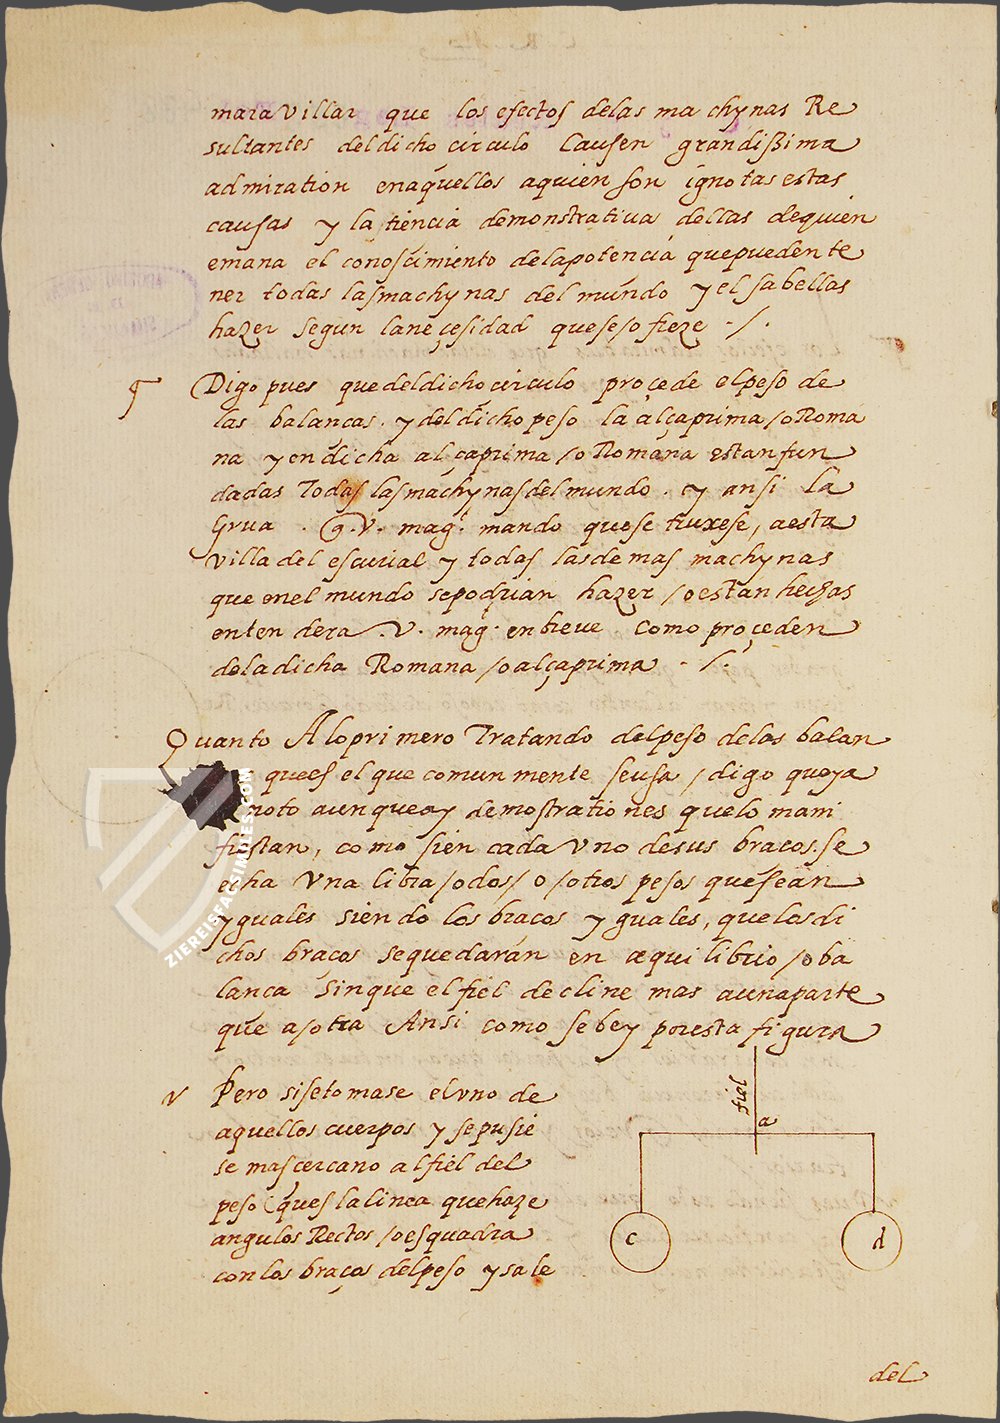 maravillar que los efectos delas machynas Re
sultantes deldicho circulo Causen grandißima
admiration enaquellos aquien son ignotas estas
causas y la tiencia demonstrativa dellas dequien
emana el conosçimiento delapotencia quepueden te
ner todas lasmachynas del mundo y el sabellas
hazer segun laneçesidad queseofreze ./.
Digo pues que deldicho circulo proçede elpeso de
las balanças. y deldicho peso la alçaprima/o Roma
na y en dicha alçaprima/o Romana estan fun
dadas Todas lasmachynas del mundo. y ansi la
Grua. q. V. mag. mando quese truxese, aesta
villa del escurial y todas lasdemas machynas
que enel mundo sepodrian hazer /oestan hechas
entendera .V. mag. enbreve como proçeden
deladicha Romana /o alçaprima ./.
Quanto Alo primero Tratando delpeso delas balan
quees el que comunmente seusa / digo queya
noto aunqueay demostrationes quelo mani
fiestan, como sien cada Uno desus braços. se
echa Una libra /odos/ o /otros pesos quesean
yguales siendo los braços yguales, quelosdi
chos braços sequedaran en æquilibrio /oba
lança sinque elfiel decline mas aunaparte
que a/otra Ansi como sebey poresta figura
Pero sisetomase elvno de
aquellos cuerpos y sepusie
se mascercano alfiel del
peso (ques lalinea quehaze
angulos Rectos /oesquadra
conlos braços delpeso ysale
fiel
a
c
d
del
ZIEREISFACSIMILES.COM